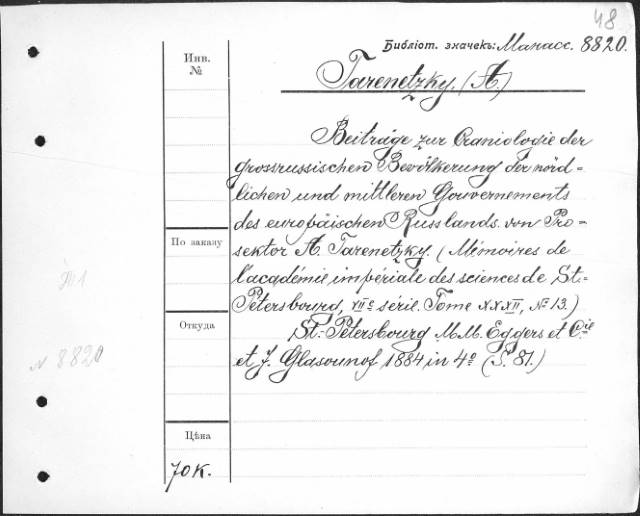 48
Библіот. значекъ: Манасс. 8820.
Инв.
№
Tarenetzky. (A.)
Beiträge zur Craniologie der
grossrussischen Bevölkerung der nörd-
lichen und mittleren Gouvernements
des europäischen Russlands. von Pro-
По заказу
sektor A. Tarenetzky. (Mémoires de
l'académie impériale des sciences de St.-
Pétersbourg, VIIe série. Tome XXXII, № 13.)
Откуда
St.-Pétersbourg M.M. Eggers et Cie
№ 8820
et J. Glasounof 1884 in 4o (S. 81.)
Цѣна
70 к.